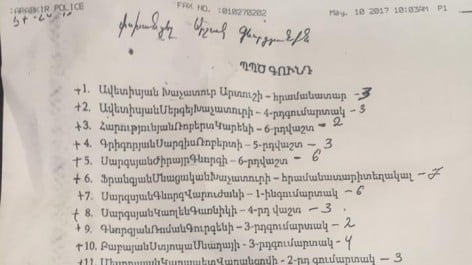 :ARABKIR POLICE FAX NO. :010270202 May. 10 2017 10:03AM P1
ՊՊԾ ԳՈՒՆԴ
+1. Ավետիսյան Խաչատուր Արտուշի – հրամանատար – 3
+2. Ավետիսյան Սերգեյ Խաչատուրի – 4-րդ գումարտակ – 3
+3. Հարությունյան Ռոբերտ Կարենի – 6-րդ վաշտ – 2
+4. Գրիգորյան Սարգիս Ռոբերտի – 5-րդ վաշտ – 3
+5. Սարգսյան Ժիրայր Գևորգի – 6-րդ վաշտ – 6
+6. Ֆրանգյան Մնացական Խաչատուրի – հրամանատարի տեղակալ – 7
+7. Սարգսյան Գևորգ Վարուժանի – 1-ին գումարտակ – 6
+8. Սարգսյան Կարլեն Գառնիկի – 4-րդ վաշտ – 3
+9. Գևորգյան Ռոման Գուրգենի – 3-րդ գումարտակ – 2
+10. Բաբայան Ստյոպա Մնարայի – 3-րդ գումարտակ – 4
+11. Կարապետ – 2-րդ գումարտակ – 3